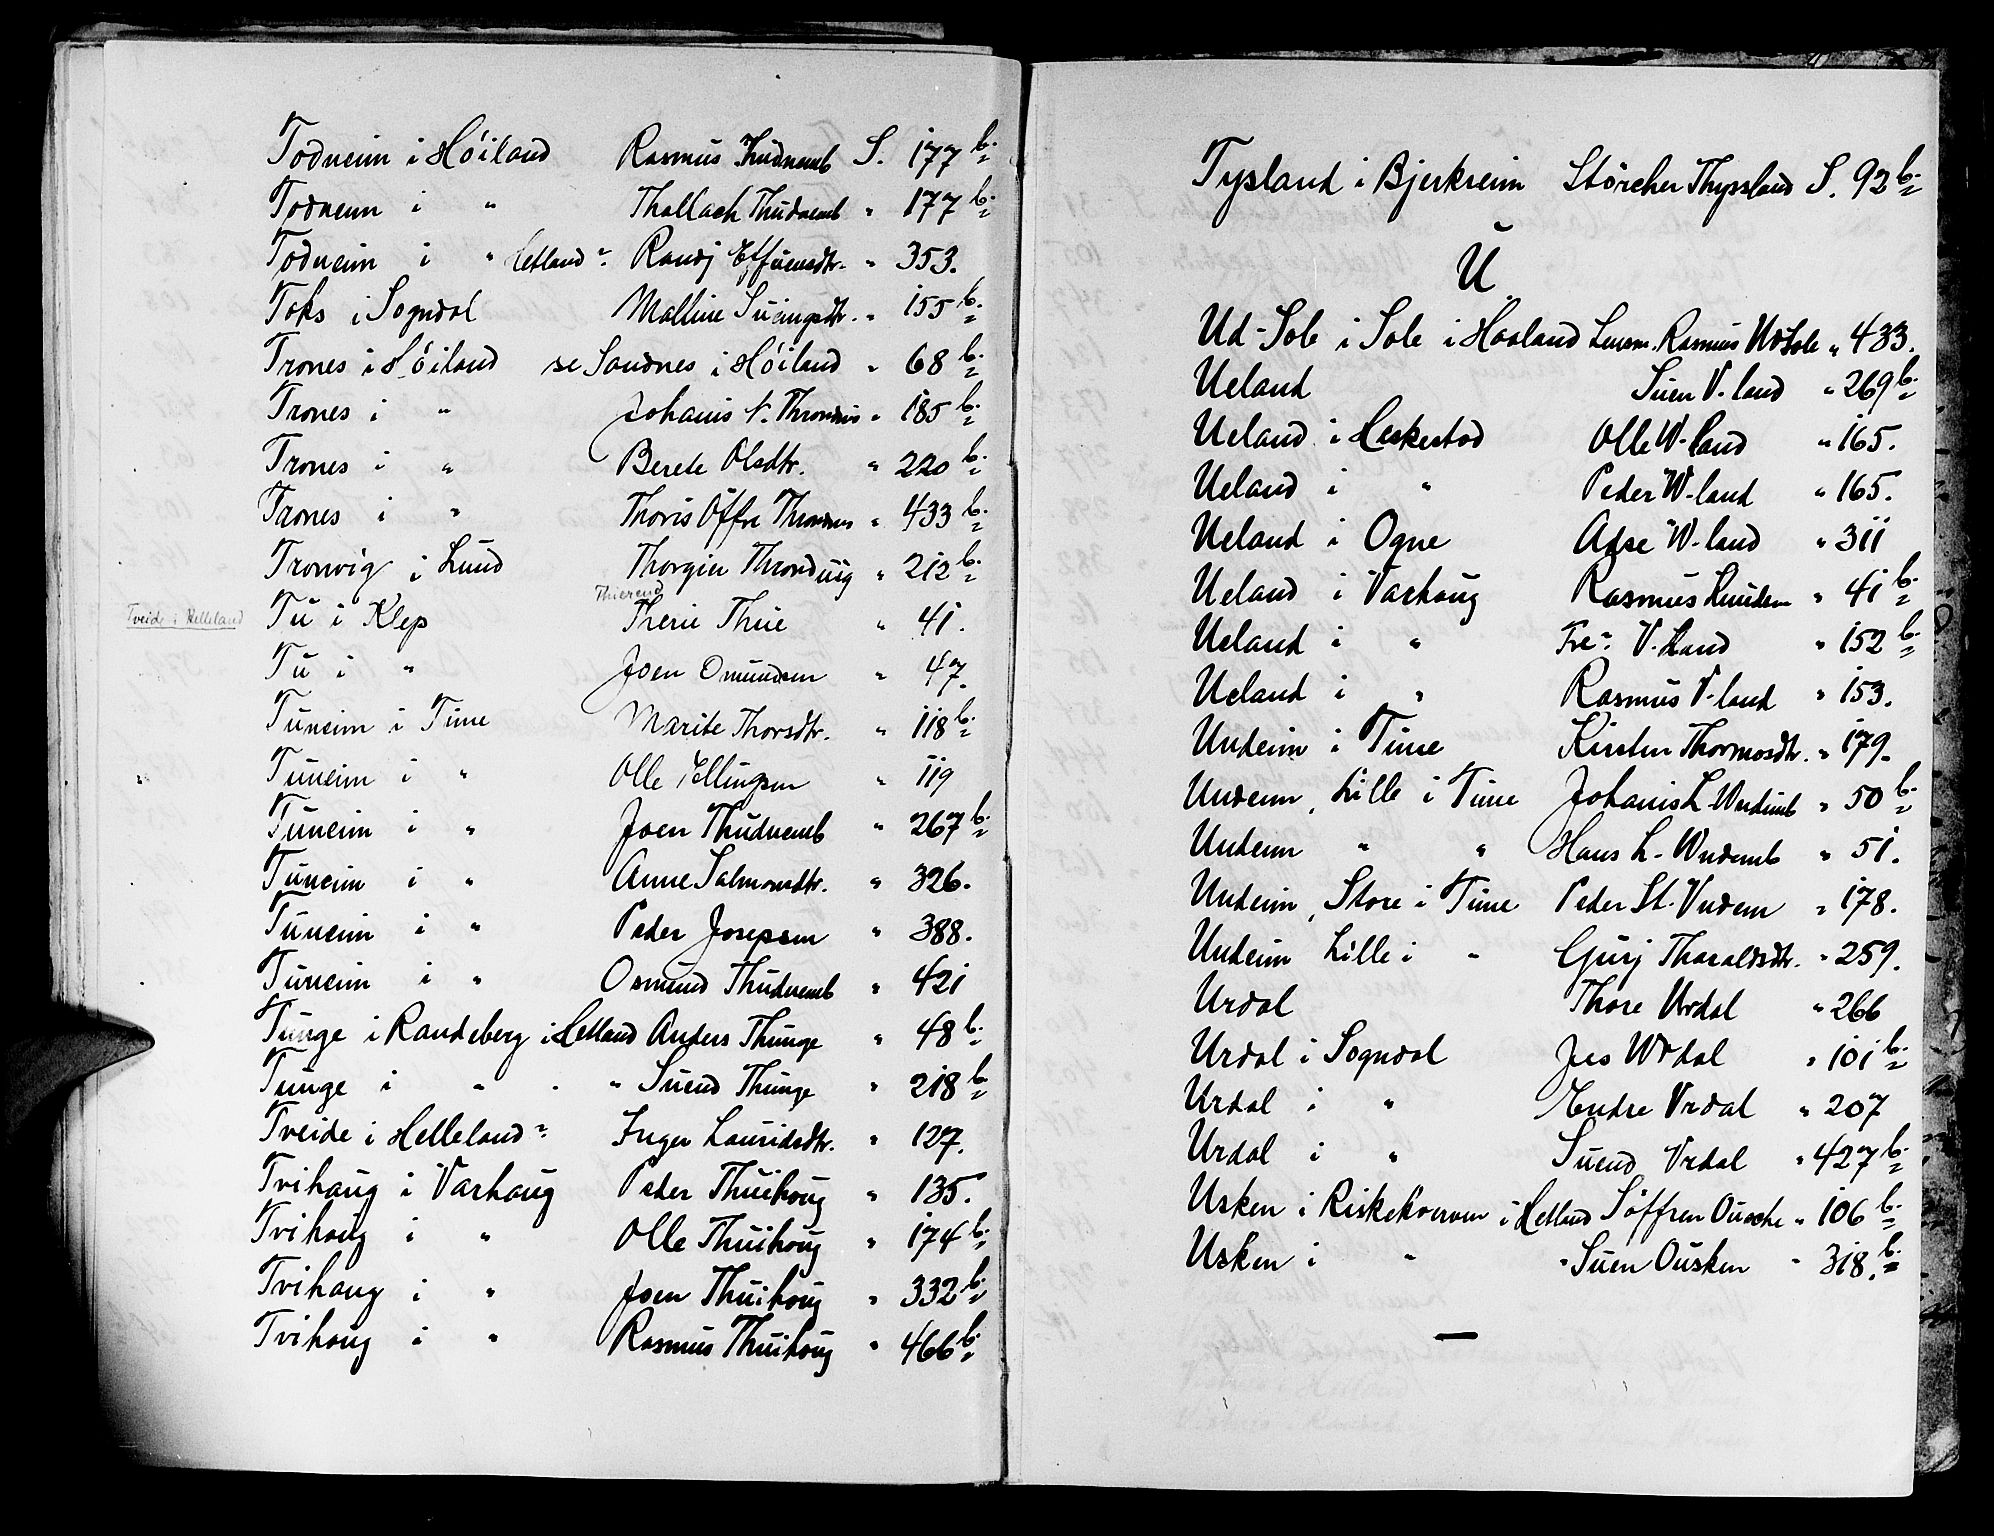 Todneim i Höiland Rasmus Thudnemb S. 177 b.
Todneim i " Thollach Thudnemb " 177 b.
Todneim i " Hetland? Randj Effuensdtr. " 353.
Toks i Sogndal Malline Suningsdtr. " 155 b.
Trones i Höiland se Sandnes i Höiland " 68 b.
Trones i " Johanis N. Thrones " 185 b.
Trones i " Berete Olsdtr. " 220 b.
Trones i " Thoris Öffre Thrones " 433 b.
Tronvig i Lund Thorgier Thronduig " 212 b.
Thierend
Tveide i Helleland
Tu i Klep Therie Thue " 41.
Tu i " Joen Omundsen " 47.
Tuneim i Time Marite Thorsdtr. " 118 b.
Tuneim i " Olle Ellingsen " 119
Tuneim i " Joen Thudnemb " 267 b.
Tuneim i " Anne Salmonsdtr. " 326.
Tuneim i " Peder Josepsen " 388.
Tuneim i " Osmund Thudnemb " 421
Tunge i Randeberg i Hetland Anders Thunge " 48 b.
Tunge i " " " Suend Thunge " 218 b.
Tveide i Helleland? Inger Lauridsdtr. " 127.
Tvihaug i Varhaug Peder Thuihoug " 135.
Tvihaug i " Olle Thuihoug " 174 b.
Tvihaug i " Joen Thuihoug " 332 b.
Tvihaug i " Rasmus Thuihoug " 466 b.
Tysland i Bjerkreim Störcher Thyssland S. 92 b.
U
Ud-Sole i Sole i Haaland Lensm. Rasmus UdSole " 433.
Ueland Suen V-land " 269 b.
Ueland i Heskestad Olle W-land " 165.
Ueland i " Peder W-land " 165.
Ueland i Ogne Adse W-land " 311
Ueland i Varhaug Rasmus Knudsen " 41 b.
Ueland i " Tre? V.Land " 152 b.
Ueland i " Rasmus V-land " 153.
Undeim i Time Kirsten Thormosdtr. " 179.
Undeim, Lille i Time Johanis L Wndemb " 50 b.
Undeim " " Hans L. Wndemb " 51.
Undeim, Store i Time Peder St. Vndem " 178.
Undeim Lille i " Gurj Tharaldsdtr. " 259.
Urdal Thore Urdal " 266
Urdal i Sogndal Jes Wrdal " 101 b.
Urdal i " Endre Vrdal " 207
Urdal i " Suend Vrdal " 427 b.
Usken i Riskekverven i Hetland Söffren Ousche " 106 b.
Usken i " " Suen Ousken " 318 b.